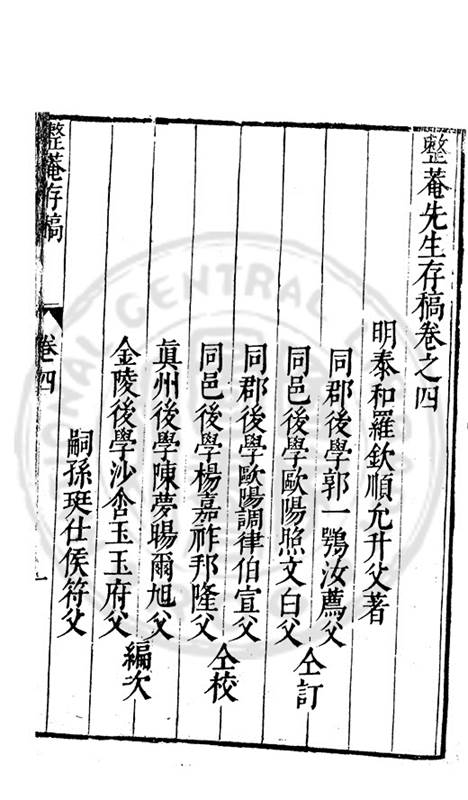 整菴先生存稿卷之四
明泰和羅欽順允升父著
同郡後學郭一鶚汝薦父
同邑後學歐陽照文白父
仝訂
同郡後學歐陽調律伯宣父
同邑後學楊嘉祚邦隆父
仝校
眞州後學陳夢暘爾旭父
金陵後學沙舍玉玉府父
編次
嗣孫珽仕侯符父
整菴存稿
卷四
一
NATIONAL CENTRAL